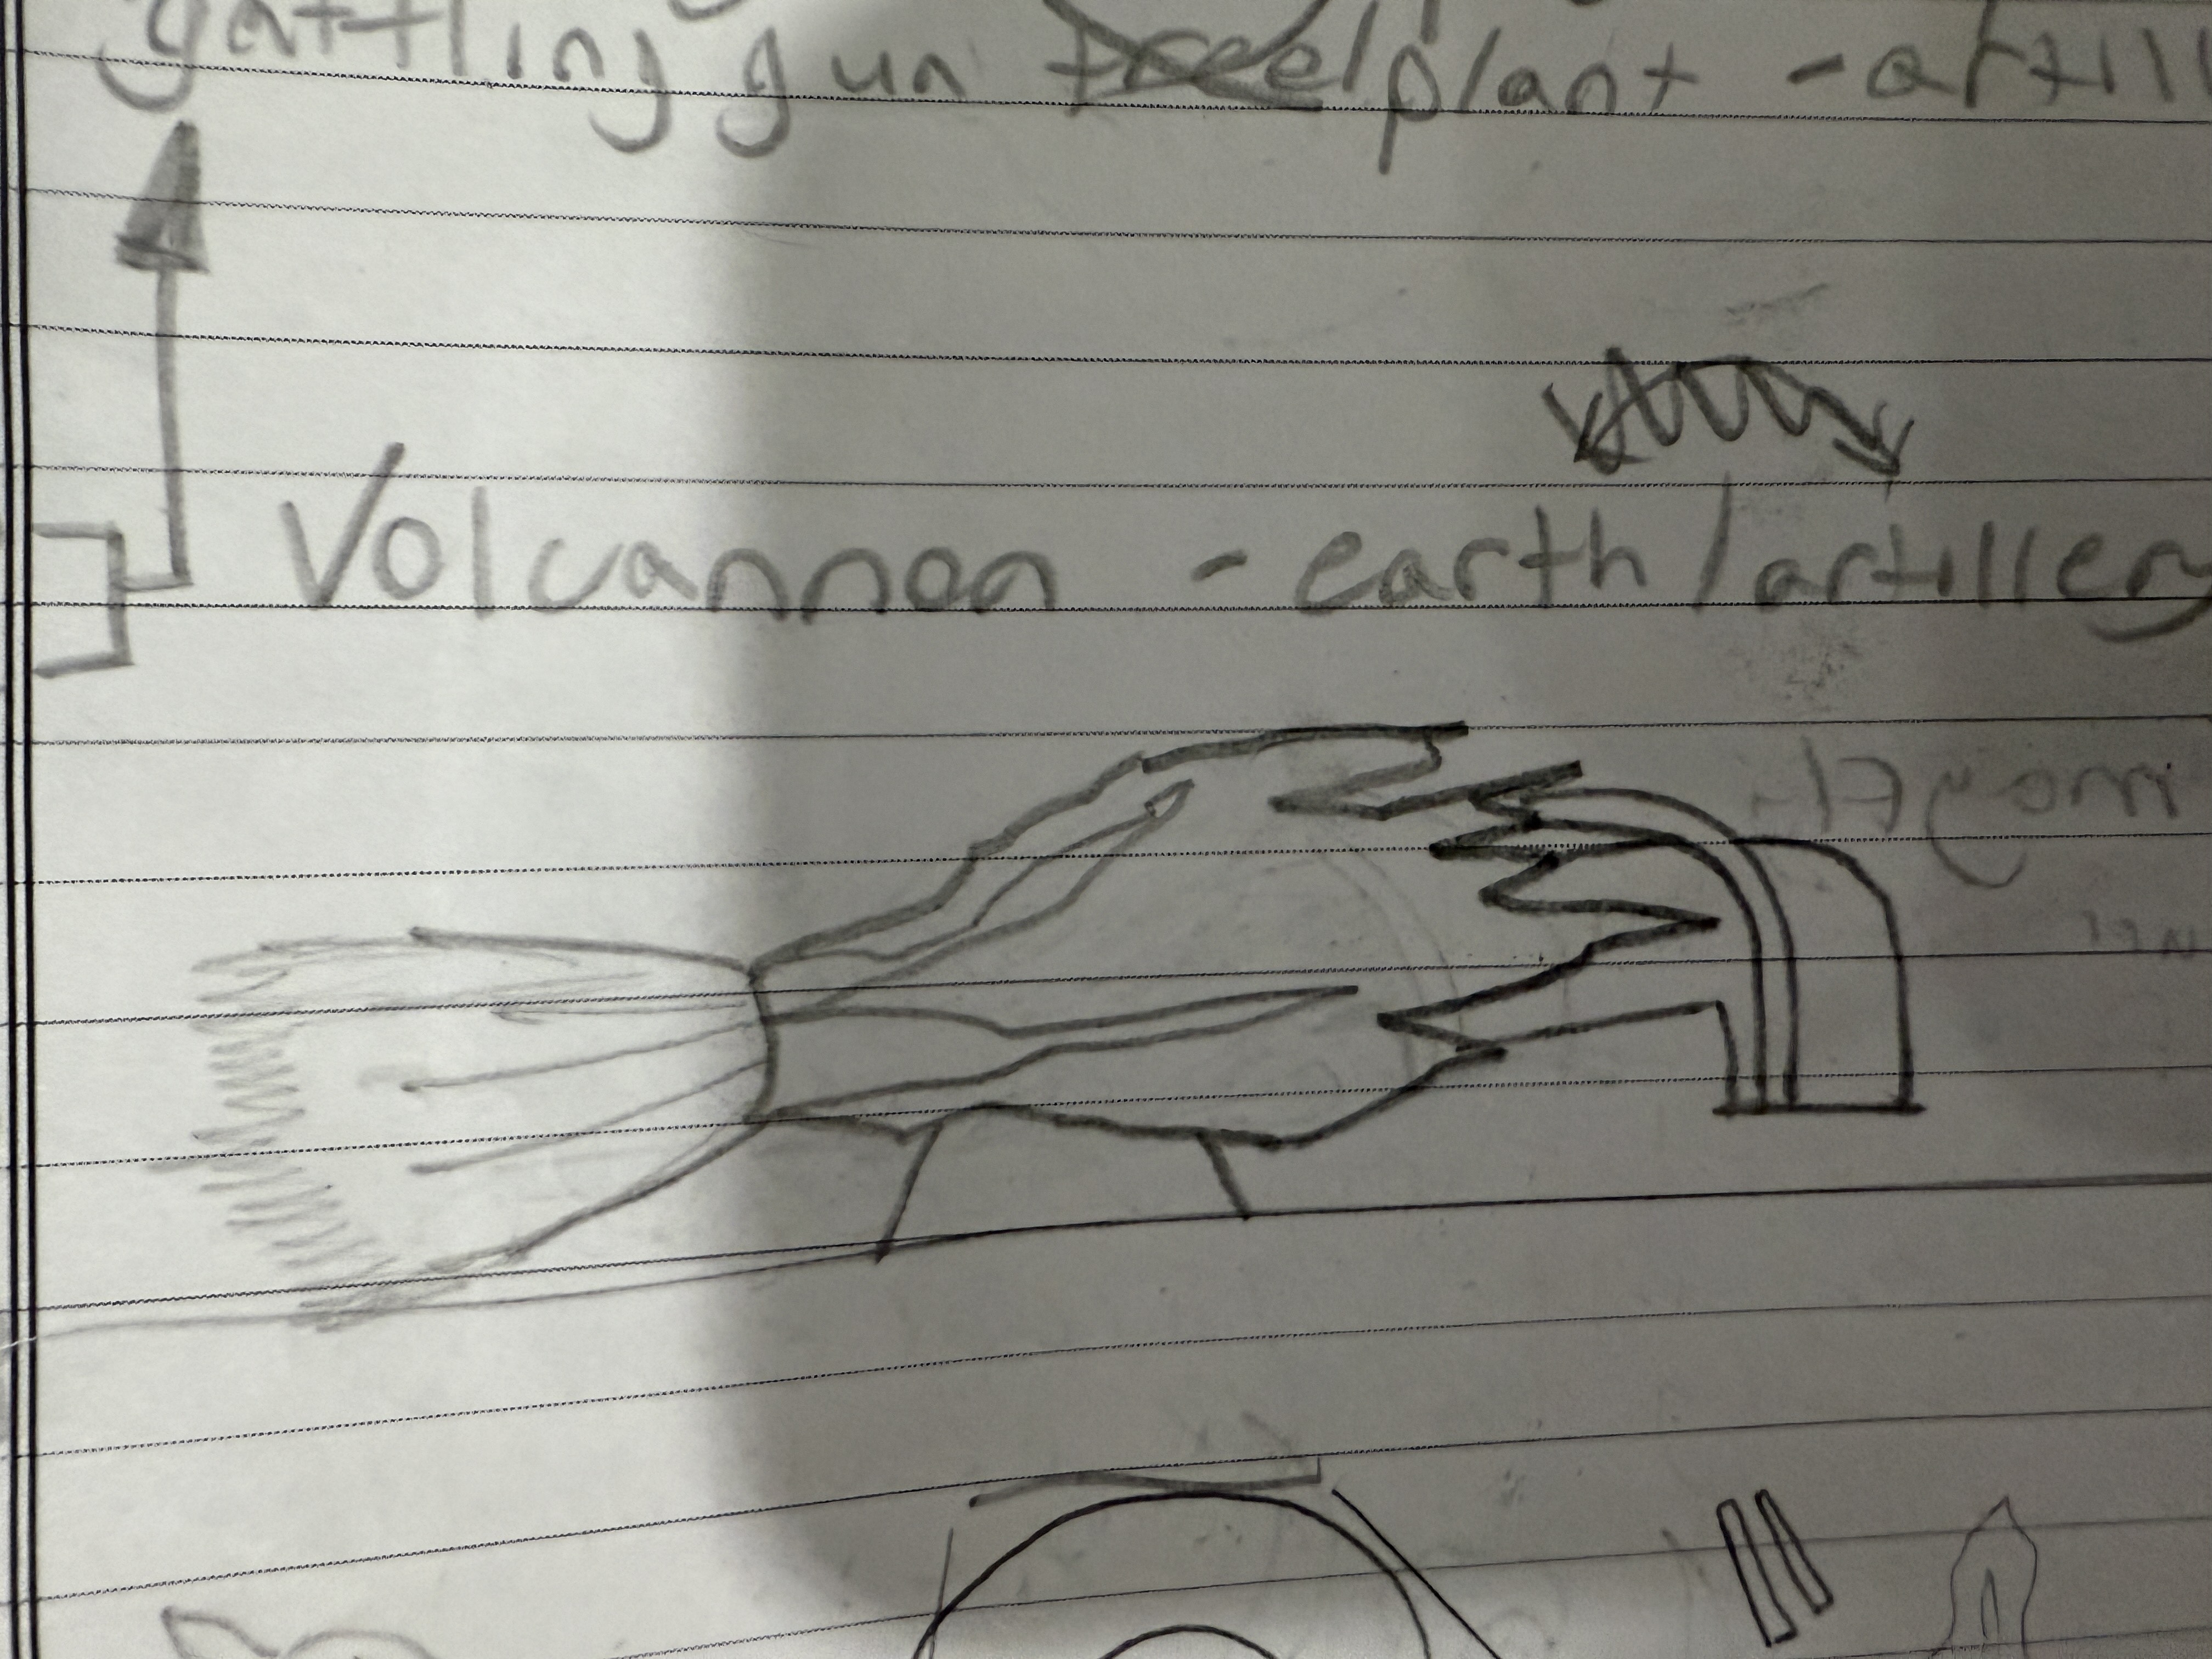 gattling gun /plant - artill
Volcannon - earth/artillery